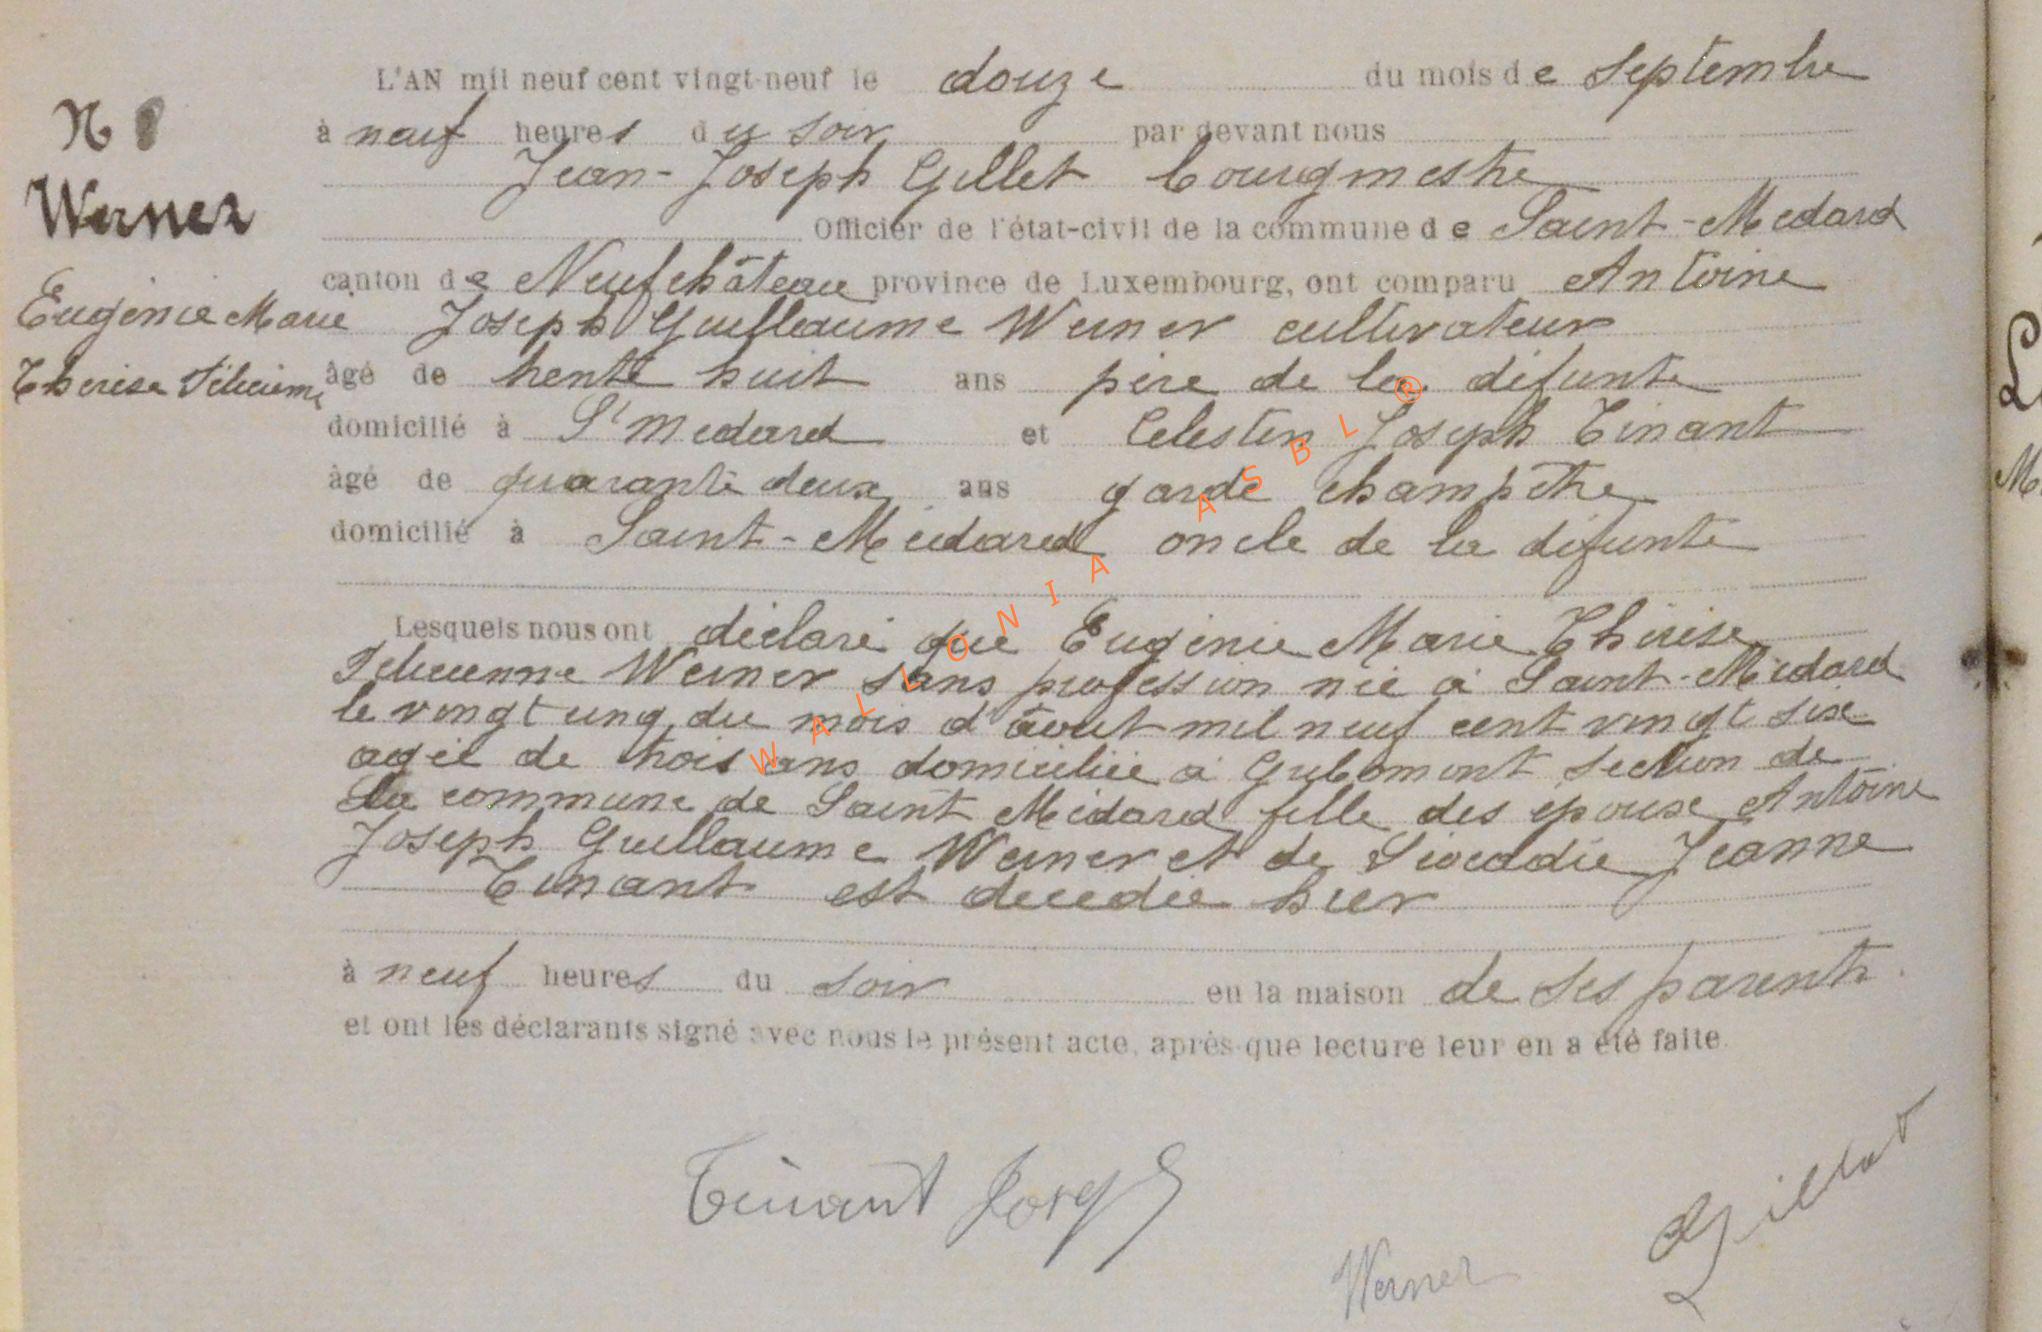 L'AN mil neuf cent vingt-neuf le douze du mois de Septembre
N 8
à neuf heures du soir par devant nous
Jean-Joseph Gillet bourgmestre
Werner
Officier de l'état-civil de la commune de Saint-Médard
canton de Neufchâteau province de Luxembourg, ont comparu Antoine
Eugénie Marie
Joseph Guillaume Werner cultivateur
Thérèse Félicienne
âgé de trente huit ans père de la défunte
domicilié à St Médard et Celestin Joseph Tinant
âgé de quarante deux ans garde champêtre
domicilié à Saint-Médard oncle de la défunte
Lesquels nous ont déclaré que Eugénie Marie Thérèse
Félicienne Werner sans profession née à Saint-Médard
le vingt cinq du mois d'août mil neuf cent vingt six
agée de trois ans domiciliée à Gribomont section de
la commune de Saint Médard fille des épouse Antoine
Joseph Guillaume Werner et de Léocadie Jeanne
Tinant est décédée hier
à neuf heures du soir en la maison de ses parents.
et ont les déclarants signé avec nous le présent acte, après que lecture leur en a été faite.
Tinant Joseph
Gillet
Werner
WALLONIA ASBL ®